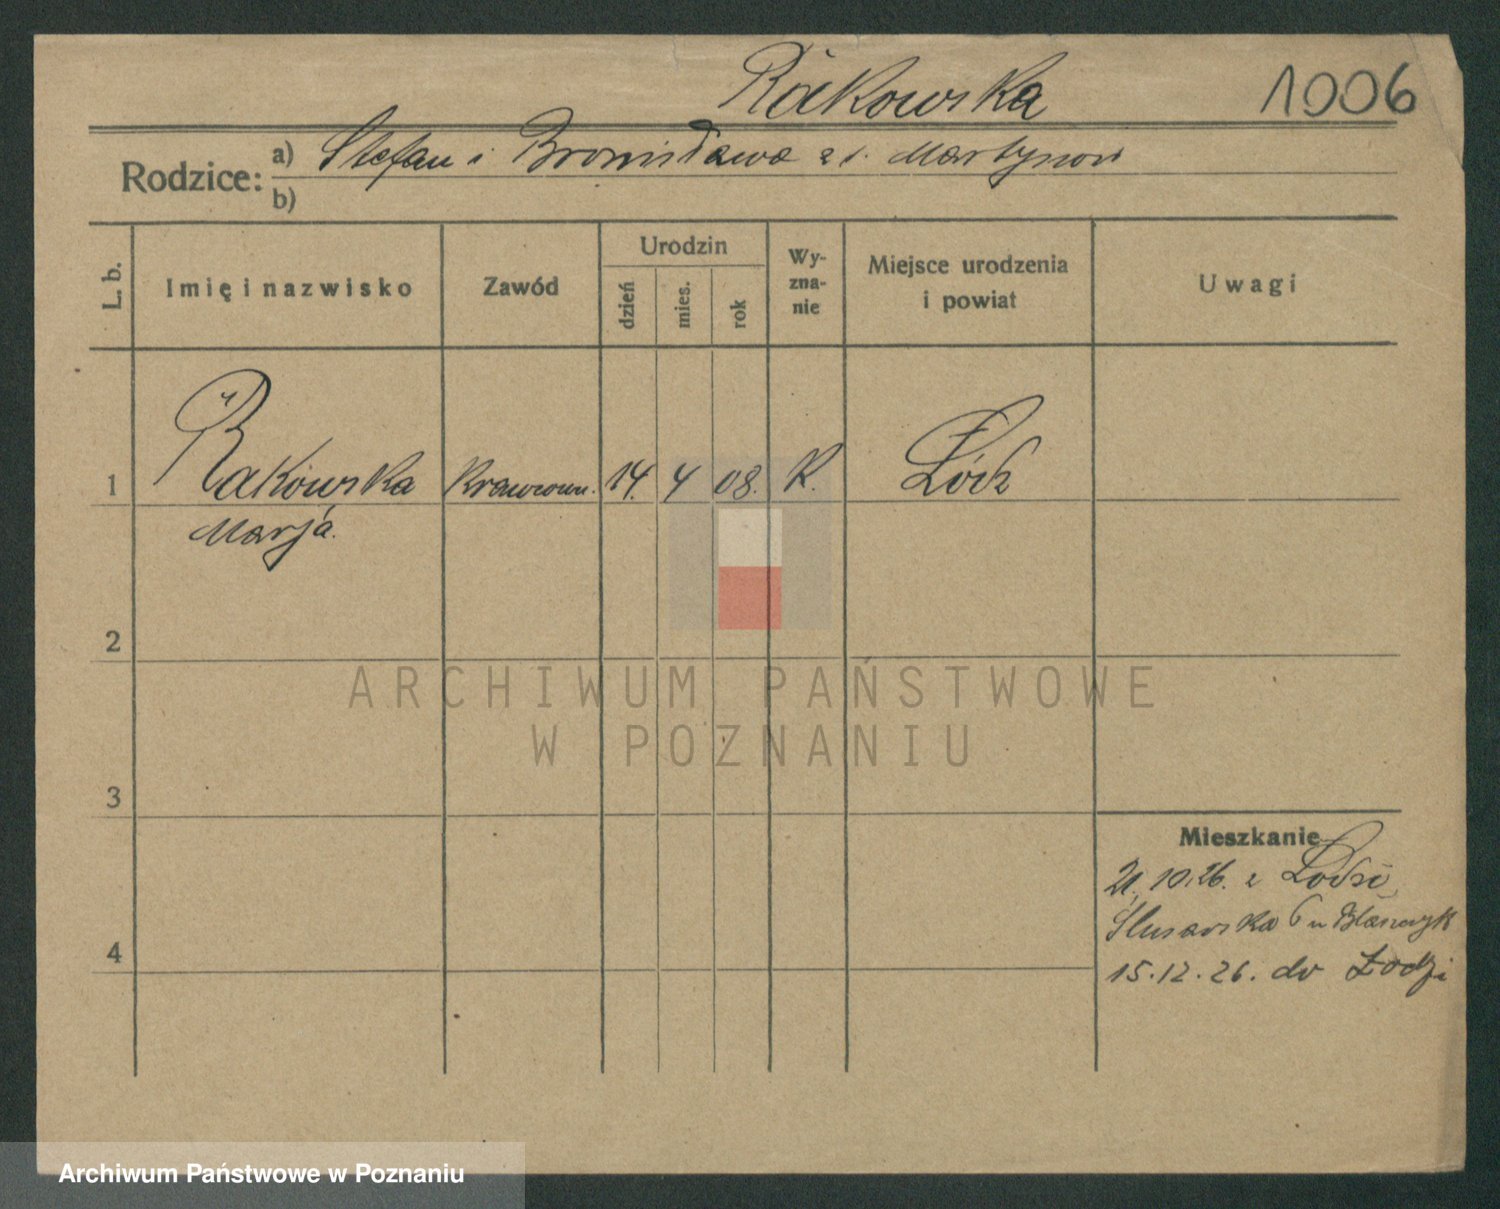 Rakowska 1006
Rodzice: a) Stefan i Bronisława z d. Martynow
b)
L. b. Imię i nazwisko Zawód Urodzin dzień mies. rok Wy-zna-nie Miejsce urodzenia i powiat Uwagi
1 Rakowska Krawcown. 14. 4 08. K. Łódź
Marja.
2
3
4
Mieszkanie
21.10.26. z Łodzi
Ślusarska 6 u
15.12.26. do Łodzi
ARCHIWUM PAŃSTWOWE
W POZNANIU
Archiwum Państwowe w Poznaniu